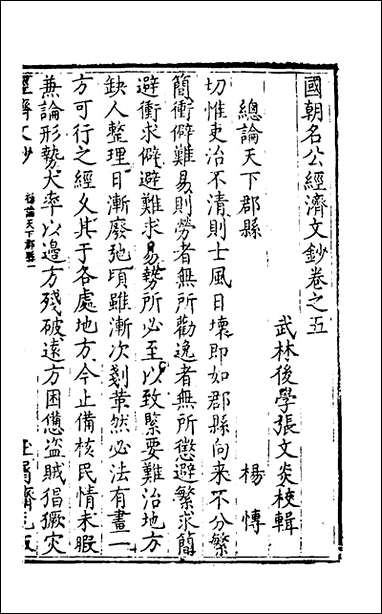 國朝名公經濟文鈔卷之五
武林後學張文炎校輯
總論天下郡縣
楊愽
切惟吏治不清則士風日壞即如郡縣向来不分繁
簡衝僻難易則勞者無所勸逸者無所懲避繁求簡
避衝求僻避難求易勢所必至以致緊要難治地方
缺人整理日漸廢弛頃雖漸次剗革然必法有畫一
方可行之經乆其于各處地方今止備核民情未暇
兼論形勢大率以邊方殘破遠方困憊盗賊猖獗灾
經濟文鈔
總論天下郡縣一